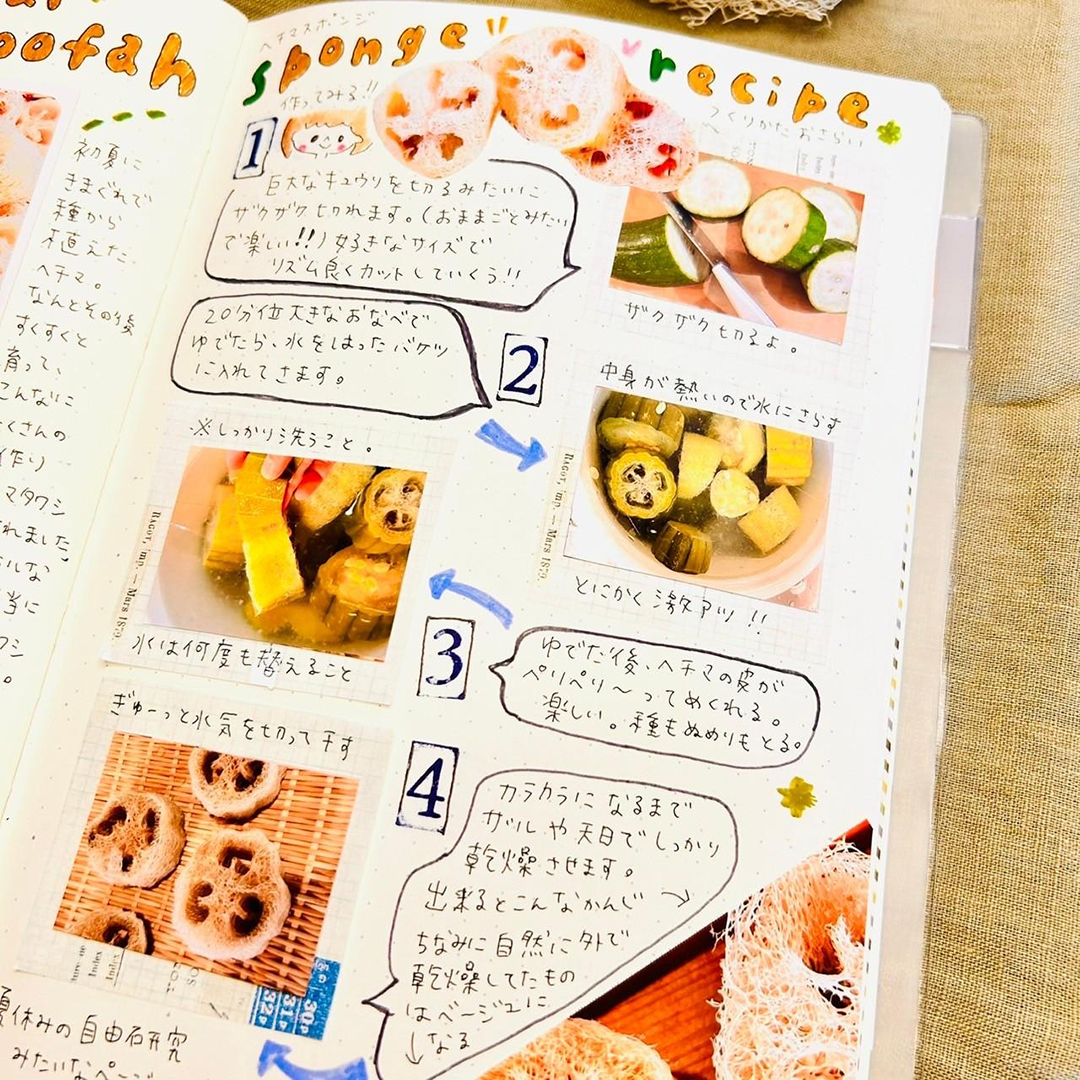 oofah
初夏に
きまぐれで
種から
植えた
ヘチマ。
なんとその後
すくすくと
育って、
こんなに
くさんの
作り
マタワシ
れました。
当に
ワシ
ヘチマスポンジ
sponge" recipe
作ってみる!!
つくりかた おさらい
1
巨大なキュウリを切るみたいに
ザクザク切れます。(おままごとみたい
で楽しい!!)好きなサイズで
リズム良くカットしていくう!!
ザクザク切るよ。
20分位大きなおなべで
ゆでたら、水をはったバケツ
に入れてさます。
2
中身が熱いので水にさらす
Ragot, imp. — Mars 1879.
とにかく激アツ!!
※しっかり洗うこと。
Ragot, imp. — Mars 1879.
水は何度も替えること
3
ゆでた後、ヘチマの皮が
ペリペリ〜ってめくれる。
楽しい。種もぬめりもとる。
ぎゅーっと水気を切って干す
4
カラカラになるまで
ザルや天日でしっかり
乾燥させます。
出来るとこんなかんじ→
ちなみに自然に外で
乾燥してたもの
はベージュに
↓なる
Index
Index
30
31
32
夏休みの自由研究
みたいなページ